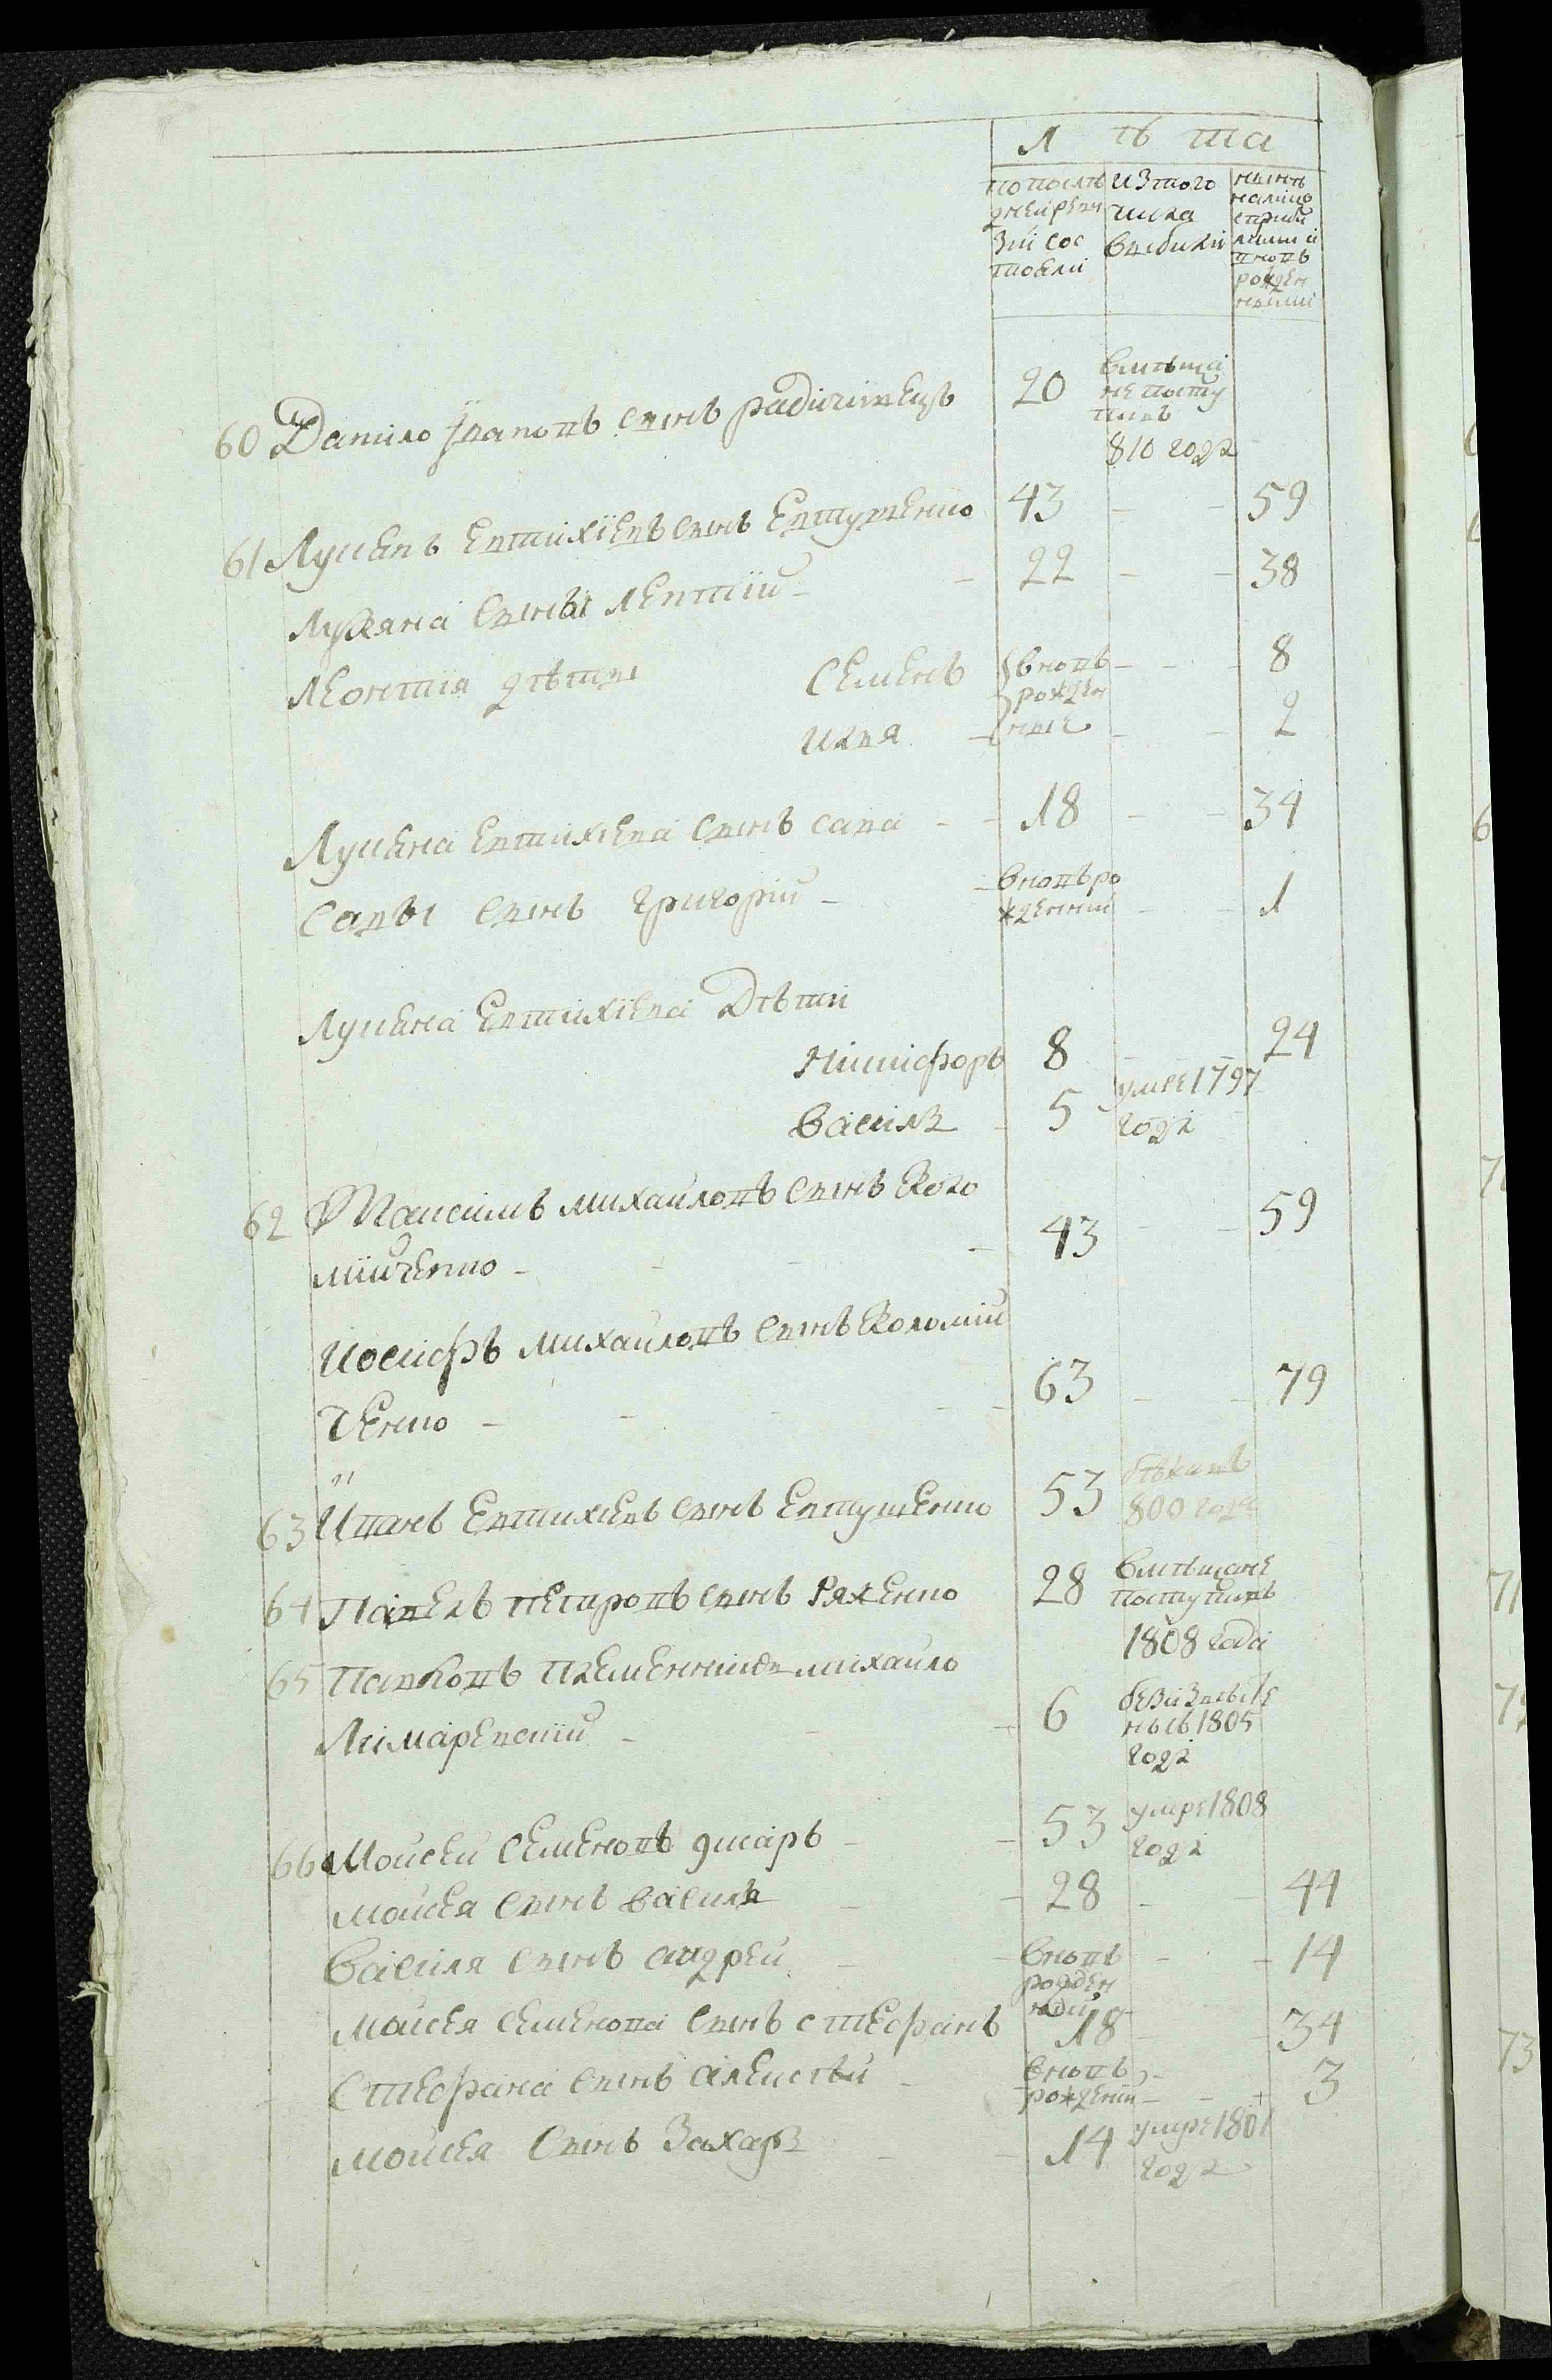 Лѣта
по послѣ
дней реви
зіи сос
тояли
изтого
числа
выбыли
нынѣ
налицо
сприб
лыми и
вновь
рожден
ными
60 Данило Ивановъ сынъ радичівецъ 20 вмѣща
не посту
пилъ
810 года
61 Лукянъ Евтихіевъ сынъ Евтушенко 43 - - 59
Лукяна сыны Леонтій - - 22 - - 38
Леонтія дѣти Семенъ вновь - - 8
рожден
Илія - ные - - 2
Лукяна Евтихіева сынъ сава - - 18 - - 34
Савы сынъ Григорій - - вновь ро
жденній - - 1
Лукяна Евтихіева Дѣти
Никифоръ 8 - - 24
Василь - 5 умре 1797
года
62 Максимъ михайловъ сынъ Коло
мійченко - - 43 - - 59
Иосифъ михайловъ сынъ Коломій
ченко - - 63 - - 79
63 Иванъ Евтихіевъ сынъ Евтушенко 53 бѣжалъ
800 года
64 Павелъ петровъ сынъ Ряженко 28 вмѣщане
поступилъ
1808 года
65 Павловъ племенникъ михайло
Лимаревский - - 6 безизвѣсте
нъ съ 1805
года
66 Мойсей Семеновъ - - 53 умре 1808
года
мойсея сынъ василь - - 28 - - 44
василя сынъ андрей - - вновь - - 14
рожден
ний
мойсея семенова сынъ стефанъ 18 - - 34
Стефана сынъ алексѣй - вновь -
рожденій - - 3
мойсея сынъ Захаръ - - 14 умре 1801
года